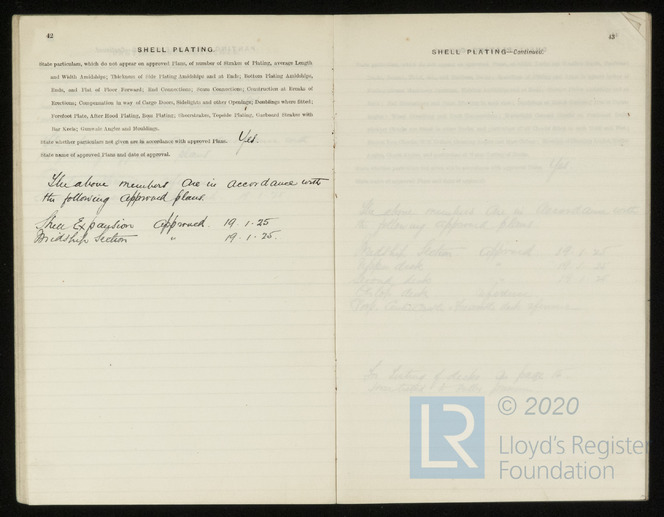 42
SHELL PLATING
State particulars, which do not appear on approved Plans, of number of Strakes of Plating, average Length
and Width Amidships; Thickness of Side Plating Amidships and at Ends; Bottom Plating Amidships,
Ends, and Flat of Floor Forward; End Connections; Seam Connections; Construction at Breaks of
Erections; Compensation in way of Cargo Doors, Sidelights and other Openings; Doublings where fitted;
Forefoot Plate, After Hood Plating, Boss Plating; Sheerstrakes, Topside Plating, Garboard Strakes with
Bar Keels; Gunwale Angles and Mouldings.
State whether particulars not given are in accordance with approved Plans. Yes.
State name of approved Plans and date of approval.
The above members are in accordance with
the following approved plans.
Shell Expansion approved. 19.1.25
Midship Section " 19.1.25.
43
SHELL PLATING—Continued.
Yes
The above members are in accordance with
the following approved plans
Midship Section approved 19.1.25
© 2020
LR
Lloyd's Register
Foundation